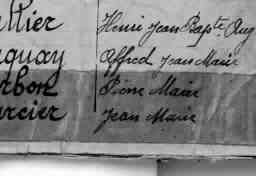 llier Henri Jean Bapte Aug
quay Alfred Jean Marie
rbon Pierre Marie
rcier Jean Marie